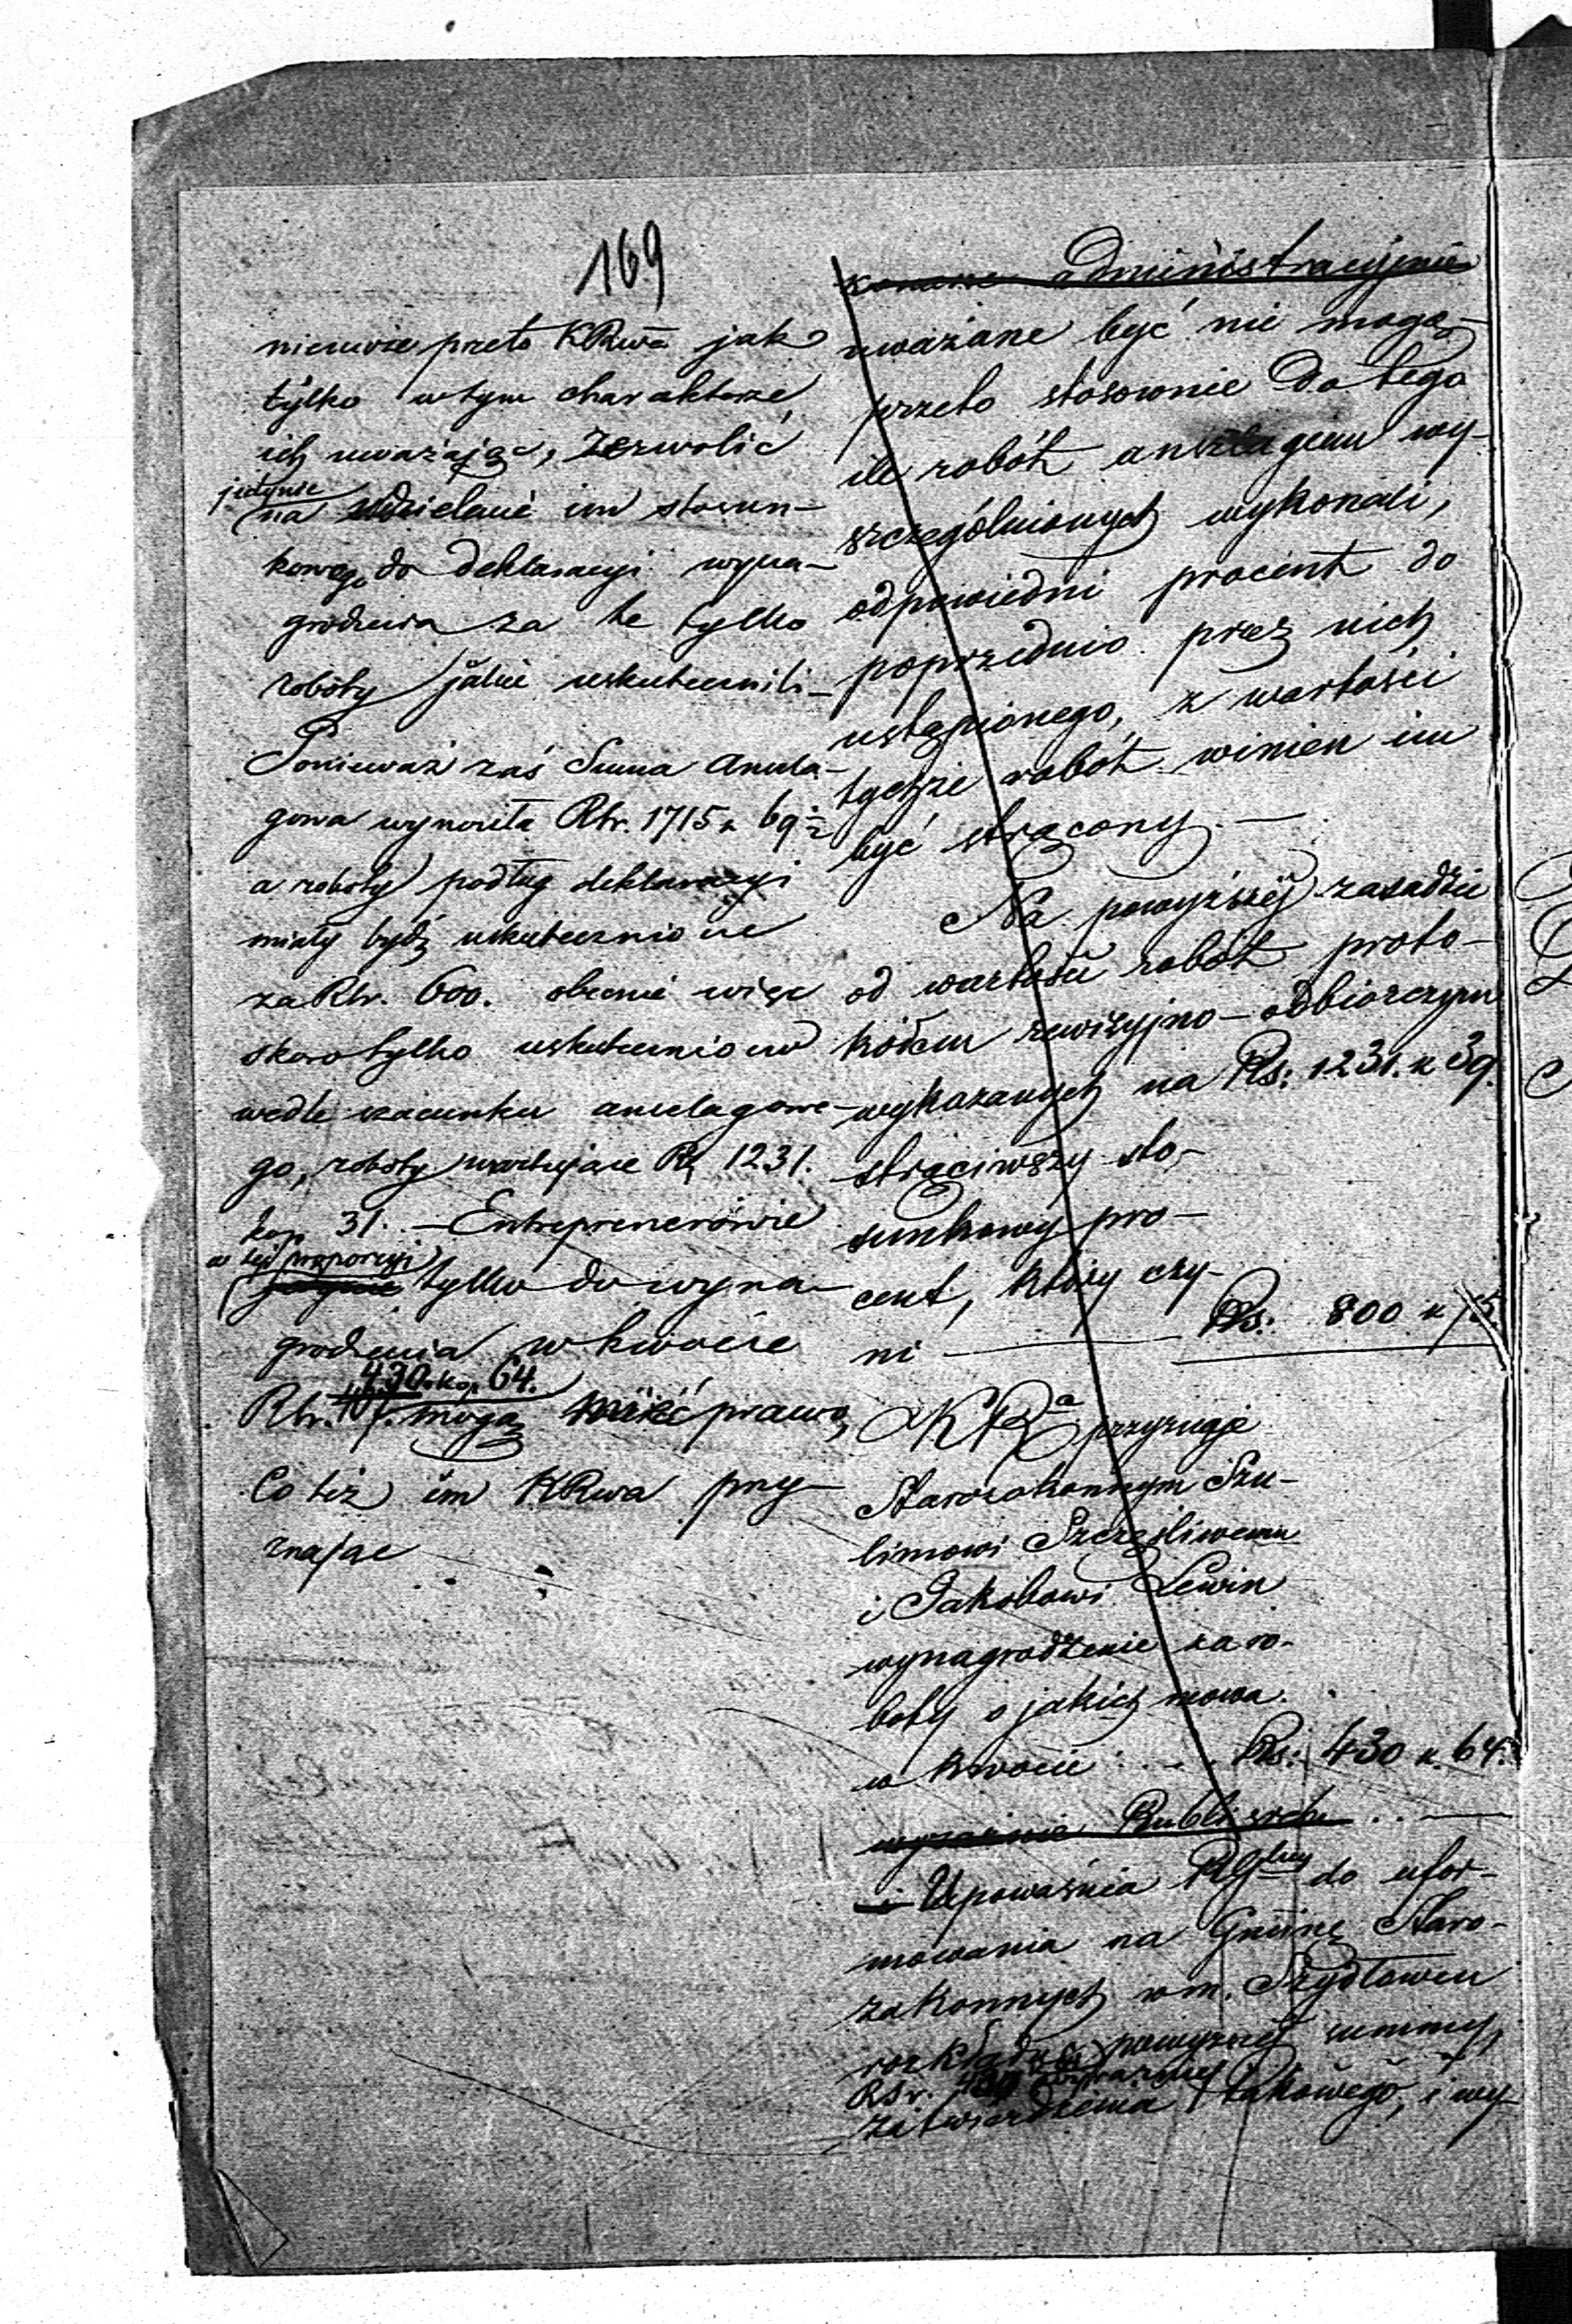 169
nie może przeto KRwa jak
tylko w tym charakterze
ich uważając, zezwolić
jedynie
na udzielenie im stosun-
kowego do deklaracyi wyna-
grodzenia za te tylko
roboty jakie uskutecznili –
Ponieważ zaś Summa anszla-
gowa wynosiła Rbr. 1715 k 69½
a roboty podług deklaracyi
miały bydź uskutecznione
za Rbr. 600. obecnie więc
skoro tylko uskuteczniono
wedle szacunku anszlagowe-
go, roboty wartujące Rs 1231.
kop 31. – Entreprenerowie
w tej proporcyi
tylko do wyna-
grodzenia w kwocie
430 kop 64.
Rbr. mogą mieć prawo,
Co też im KRwa przy-
znając
administracyjnie
uważane być nie mogą –
przeto stosownie do tego
ile robót anszlagiem wy-
szczególnionych wykonali,
odpowiedni procent do
poprzednio przez nich
ustąpionego, z wartości
tychże robót winien im
być strącony. –
Na powyższej zasadzie
od wartości robót proto-
kółem rewizyjno-odbiorczym
wykazanych na Rs: 1231. k 39.
strąciwszy sto-
sunkowy pro-
cent, który czy-
ni — Rs: 800 k 75
KRa przyznaje
Starozakonnym Szu-
limowi Szczęśliwemu
i Jakóbowi Lewin
wynagrodzenie za ro-
boty o jakich mowa
w kwocie . . . Rs: 430 k. 64.
wyraźnie Rubli srebr . . —
i Upoważnia RGlny do ufor-
mowania na Gminę Staro-
zakonnych w m. Szydłowcu
rozkładu powyższej summy
Rsr. 430
zatwierdzenia takowego, i wy-